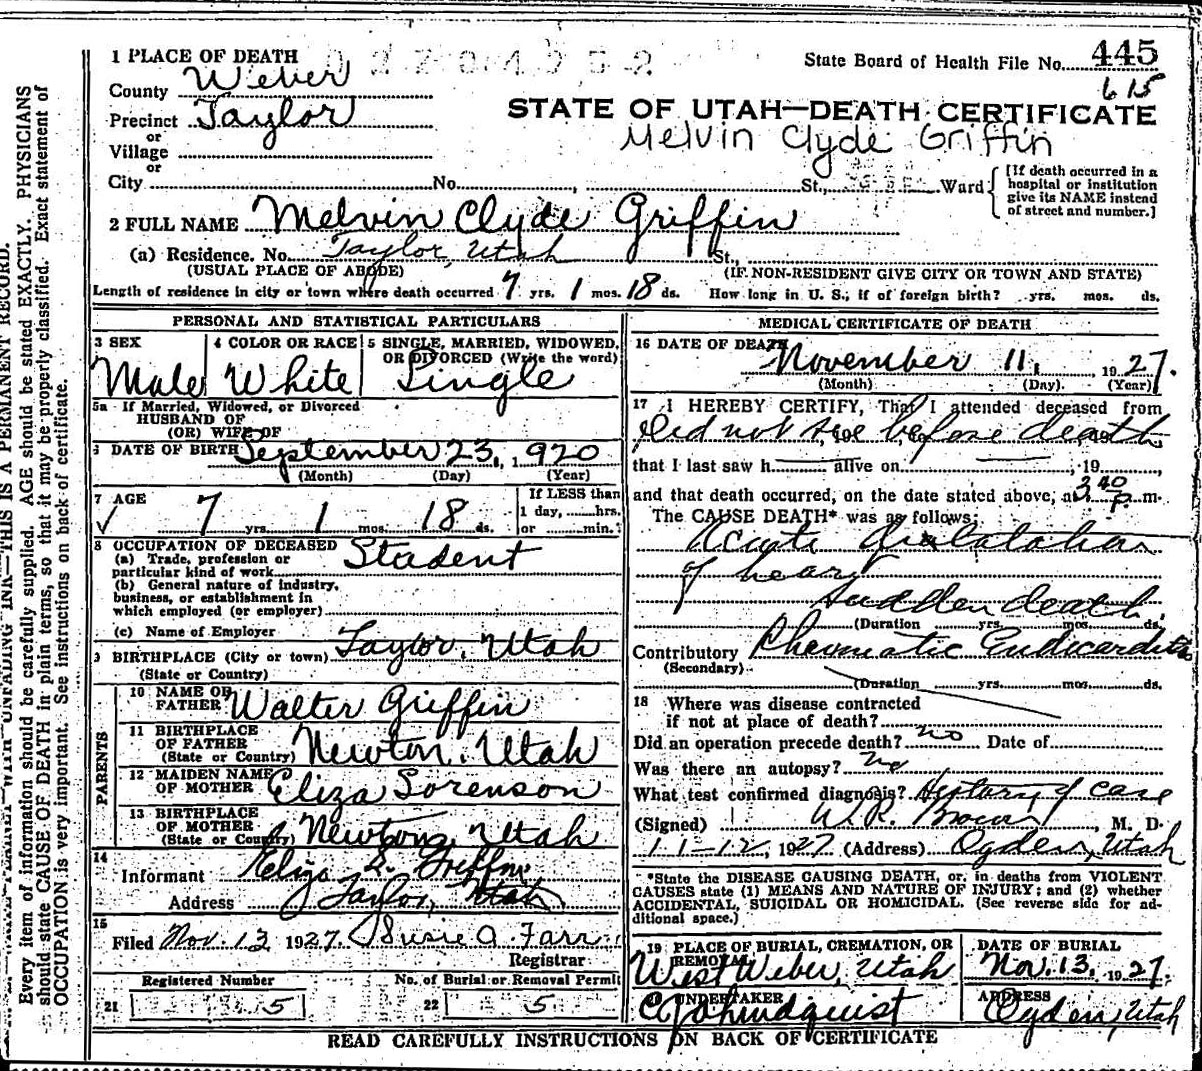 1 PLACE OF DEATH
State Board of Health File No. 445
615
County Weber
STATE OF UTAH—DEATH CERTIFICATE
Precinct Taylor
Melvin Clyde Griffin
or
Village
or
City No. , St., Ward
[If death occurred in a
hospital or institution
give its NAME instead
of street and number.]
2 FULL NAME Melvin Clyde Griffin
(a) Residence. No. Taylor, Utah St.,
(USUAL PLACE OF ABODE) (IF NON-RESIDENT GIVE CITY OR TOWN AND STATE)
Length of residence in city or town where death occurred 7 yrs. 1 mos. 18 ds. How long in U. S.; if of foreign birth? yrs. mos. ds.
PERSONAL AND STATISTICAL PARTICULARS
3 SEX
Male
4 COLOR OR RACE
White
5 SINGLE, MARRIED, WIDOWED,
OR DIVORCED (Write the word)
Single
5a If Married, Widowed, or Divorced
HUSBAND OF
(OR) WIFE OF
DATE OF BIRTH September 23, 1920
(Month) (Day) (Year)
7 AGE
7 yrs. 1 mos. 18 ds.
If LESS than
1 day, hrs.
or min.
8 OCCUPATION OF DECEASED Student
(a) Trade, profession or
particular kind of work
(b) General nature of industry,
business, or establishment in
which employed (or employer)
(c) Name of Employer
BIRTHPLACE (City or town) Taylor, Utah
(State or Country)
PARENTS
10 NAME OF
FATHER Walter Griffin
11 BIRTHPLACE
OF FATHER
(State or Country) Newton, Utah
12 MAIDEN NAME
OF MOTHER Eliza Sorenson
13 BIRTHPLACE
OF MOTHER
(State or Country) Newton, Utah
14
Informant Eliza S. Griffin
Address Taylor, Utah
15
Filed Nov. 13 1927. Susie A. Farr
Registrar
Registered Number No. of Burial or Removal Permit
21 5 22 5
MEDICAL CERTIFICATE OF DEATH
16 DATE OF DEATH November 11, 1927.
(Month) (Day). (Year)
17 I HEREBY CERTIFY, That I attended deceased from
Did not see before death
that I last saw h alive on , 19 ,
and that death occurred, on the date stated above, at 3 40 P. m.
The CAUSE DEATH* was as follows:
Acute dilatation
of heart
Sudden death.
(Duration yrs. mos. ds.
Contributory Rheumatic Endicarditis
(Secondary)
(Duration yrs. mos. ds.
18 Where was disease contracted
if not at place of death?
Did an operation precede death? no Date of
Was there an autopsy? no
What test confirmed diagnosis? History of case
(Signed) W. R. Brown, M. D.
11-12, 1927 (Address) Ogden, Utah
*State the DISEASE CAUSING DEATH, or, in deaths from VIOLENT
CAUSES state (1) MEANS AND NATURE OF INJURY; and (2) whether
ACCIDENTAL, SUICIDAL OR HOMICIDAL. (See reverse side for ad-
ditional space.)
19 PLACE OF BURIAL, CREMATION, OR
REMOVAL
West Weber, Utah
DATE OF BURIAL
Nov. 13, 1927.
UNDERTAKER
ADDRESS
Ogden, Utah
READ CAREFULLY INSTRUCTIONS ON BACK OF CERTIFICATE
THIS IS A PERMANENT RECORD.
Every item of information should be carefully supplied. AGE should be stated EXACTLY. PHYSICIANS
should state CAUSE OF DEATH in plain terms, so that it may be properly classified. Exact statement of
OCCUPATION is very important. See instructions on back of certificate.